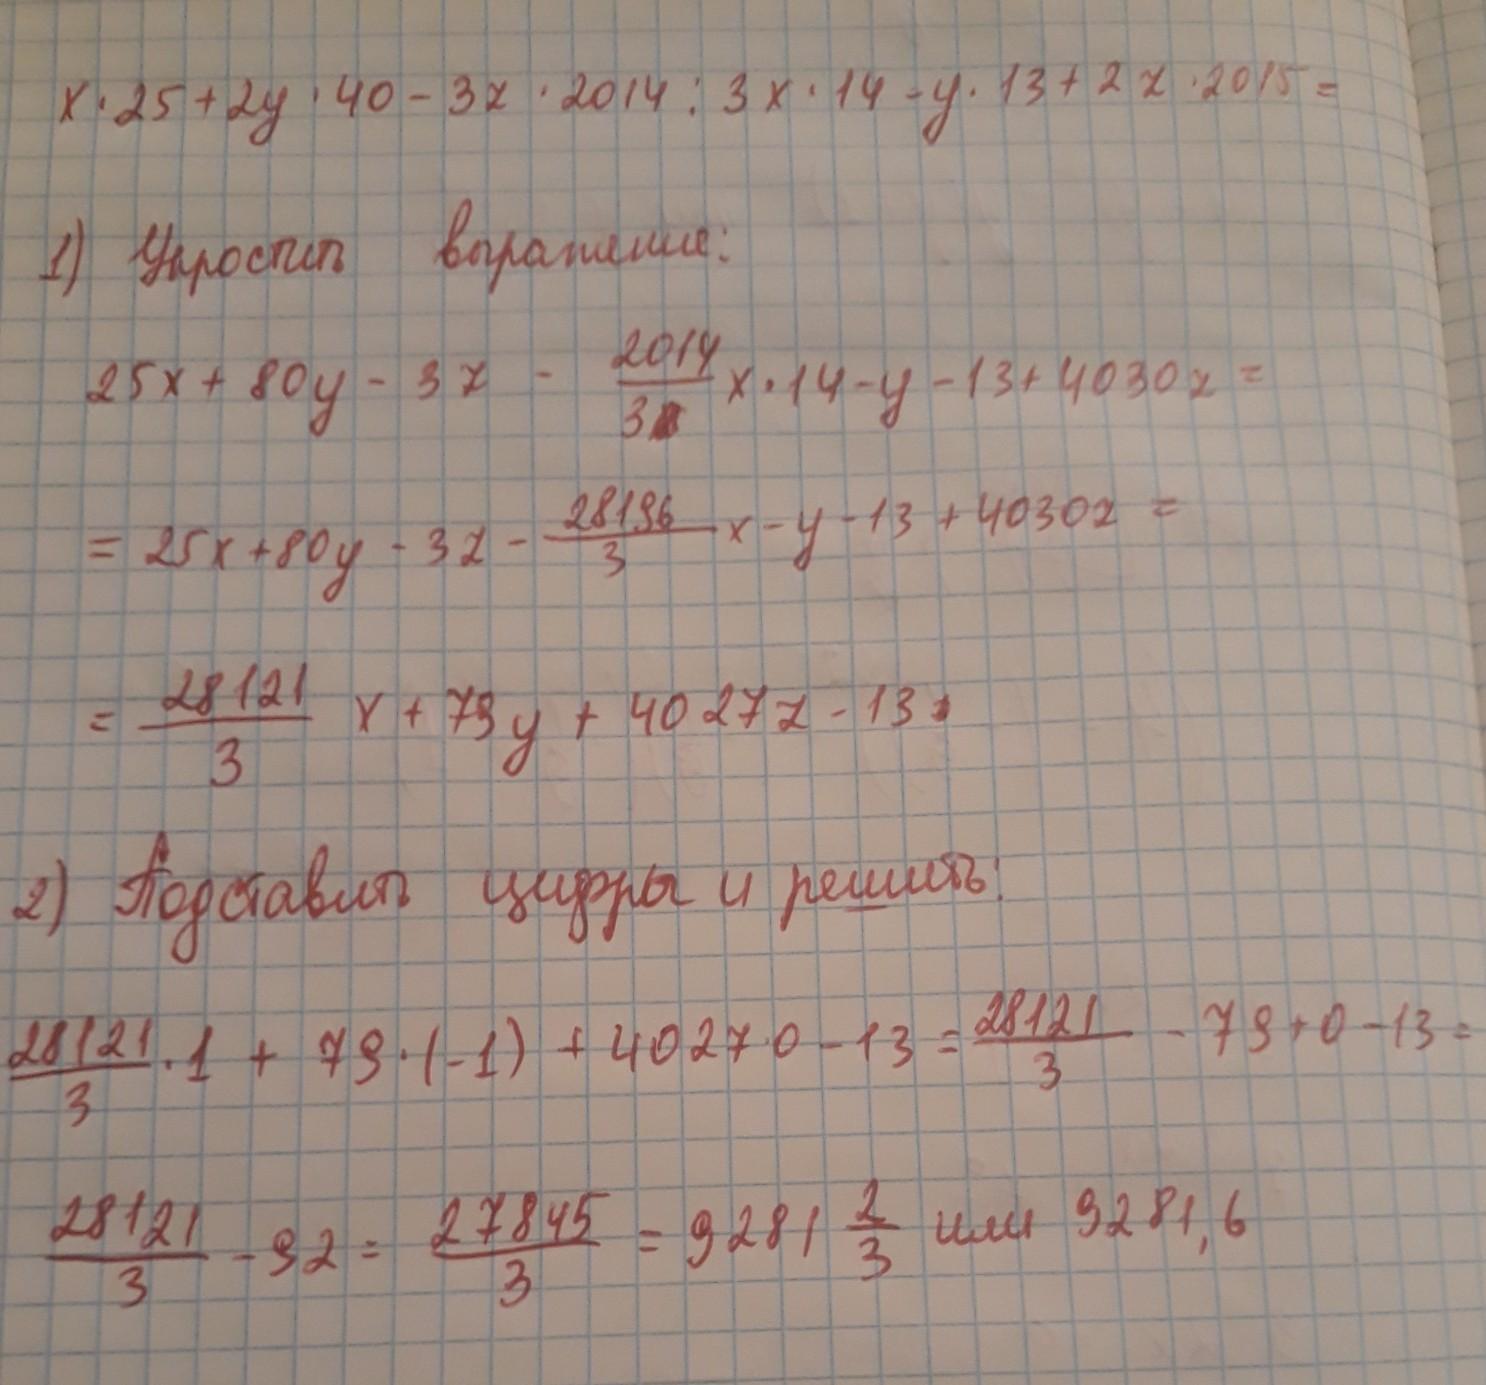 x·25+2y·40-3z·2014:3x·14-y·13+2z·2015=
1) Упростить выражение:
25x+80y-3z - 2014/3 x·14-y-13+4030z=
=25x+80y-3z-28196/3 x-y-13+4030z=
=28121/3 x+79y+4027z-13
2) Подставить цифры и решить:
28121/3·1+79·(-1)+4027·0-13=28121/3-79+0-13=
28121/3-92=27845/3=9281 2/3 или 9281,6